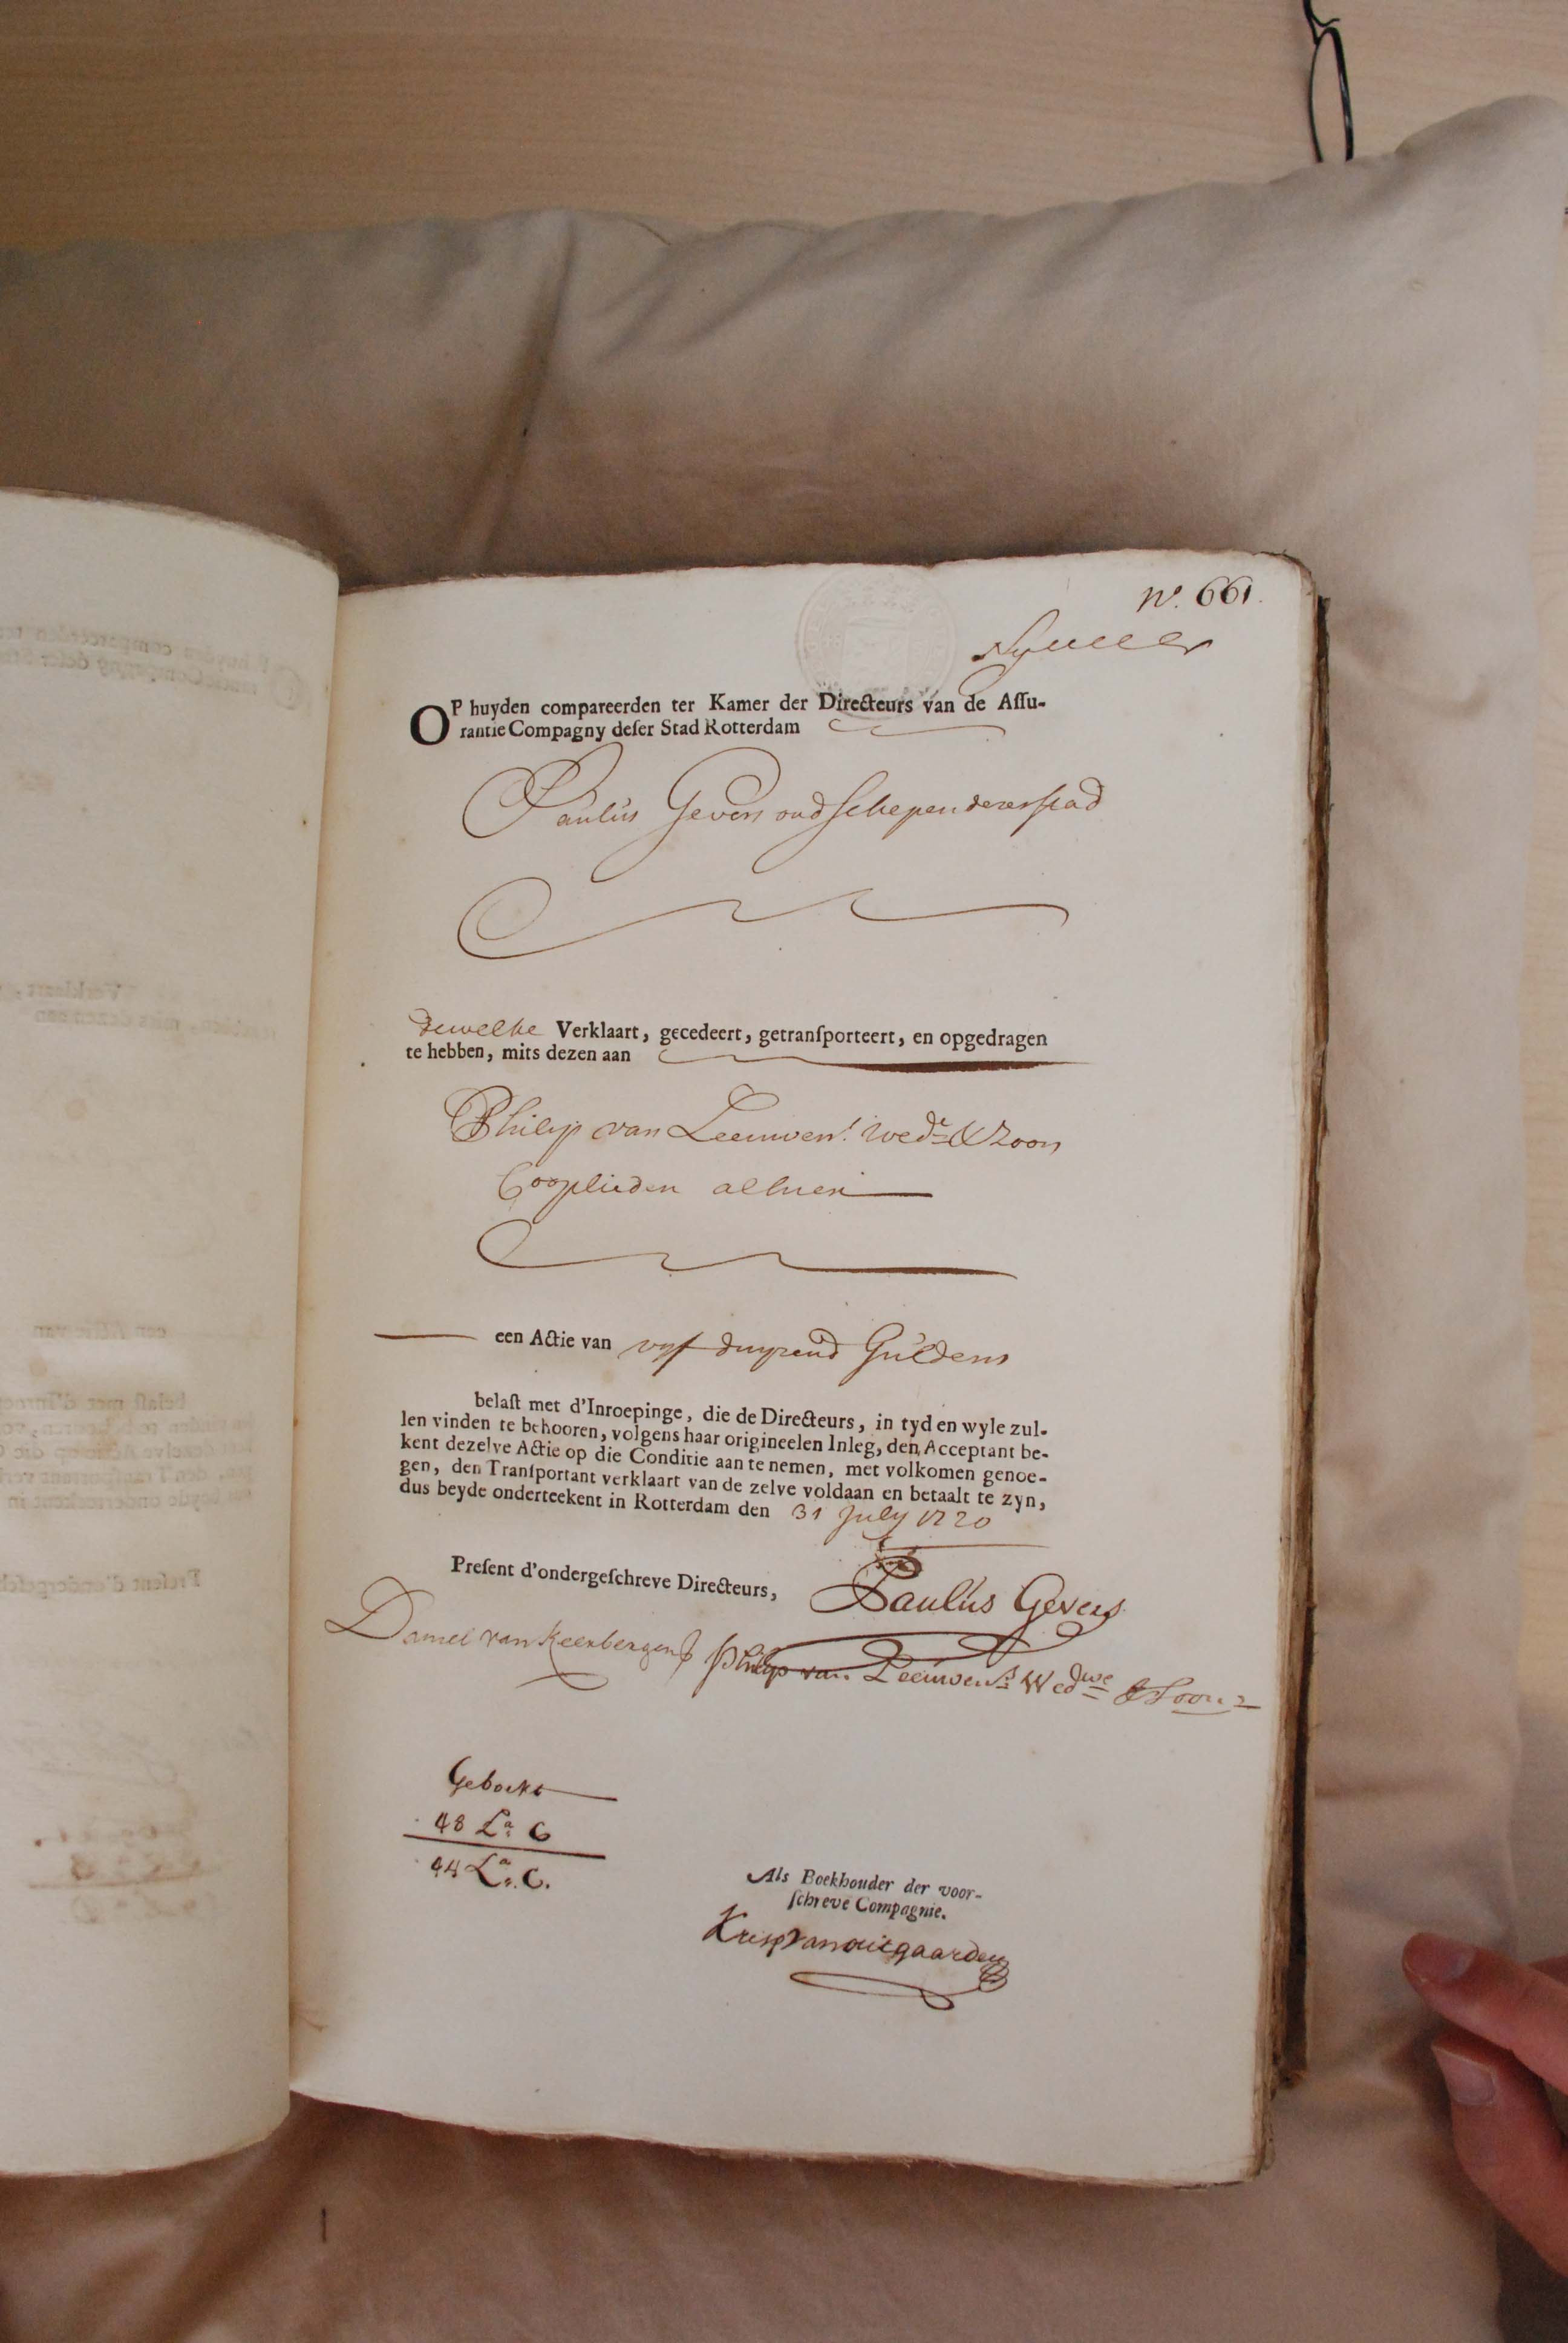 No. 661.
OP huyden compareerden ter Kamer der Directeurs van de Assu-
rantie Compagny deser Stad Rotterdam
Paulus Gevers oud schepen deser stad
dewelke Verklaart, gecedeert, getransporteert, en opgedragen
te hebben, mits dezen aan
Philip van Leeuwens wede & Zoon
Cooplieden alhier
een Actie van vyf duysend Guldens
belast met d'Inroepinge, die de Directeurs, in tyd en wyle zul-
len vinden te behooren, volgens haar origineelen Inleg, den Acceptant be-
kent dezelve Actie op die Conditie aan te nemen, met volkomen genoe-
gen, den Transportant verklaart van de zelve voldaan en betaalt te zyn,
dus beyde onderteekent in Rotterdam den 31 July 1720
Present d'ondergeschreve Directeurs, Paulus Gevers
Daniel van Keerbergen
Philip van Leeuwens Wedwe & Soon
Geboekt
48 La. C
44 La. C.
Als Boekhouder der voor-
schreve Compagnie.